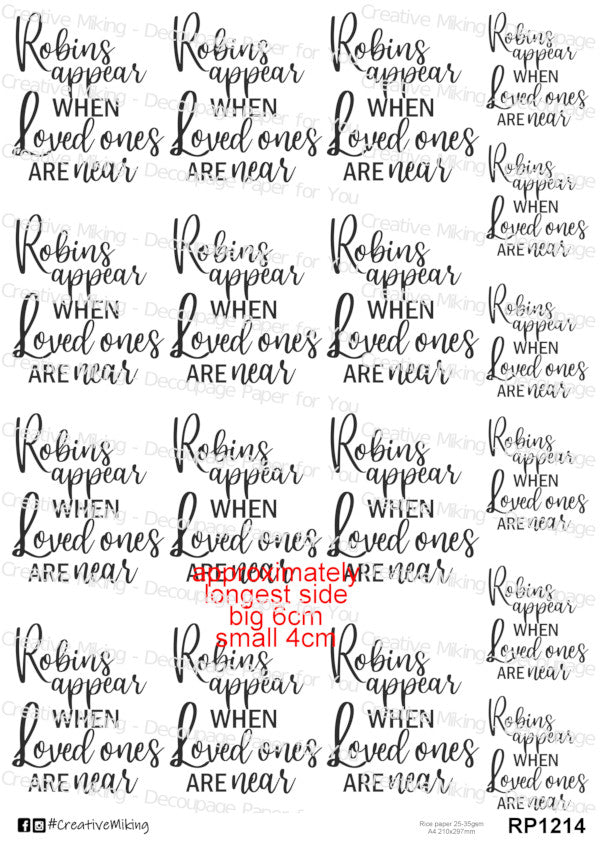 Robins
appear
WHEN
Loved ones
ARE near
Robins
appear
WHEN
Loved ones
ARE near
Robins
appear
WHEN
Loved ones
ARE near
Robins
appear
WHEN
Loved ones
ARE near
Robins
appear
WHEN
Loved ones
ARE near
Robins
appear
WHEN
Loved ones
ARE near
Robins
appear
WHEN
Loved ones
ARE near
Robins
appear
WHEN
Loved ones
ARE near
Robins
appear
WHEN
Loved ones
ARE near
Robins
appear
WHEN
Loved ones
ARE near
Robins
appear
WHEN
Loved ones
ARE near
Robins
appear
WHEN
Loved ones
ARE near
Robins
appear
WHEN
Loved ones
ARE near
Robins
appear
WHEN
Loved ones
ARE near
Robins
appear
WHEN
Loved ones
ARE near
Robins
appear
WHEN
Loved ones
ARE near
Robins
appear
WHEN
Loved ones
ARE near
Robins
appear
WHEN
Loved ones
ARE near
approximately
longest side
big 6cm
small 4cm
Creative Miking - Decoupage Paper for You
#CreativeMiking
Rice paper 25-35gsm
A4 210x297mm
RP1214